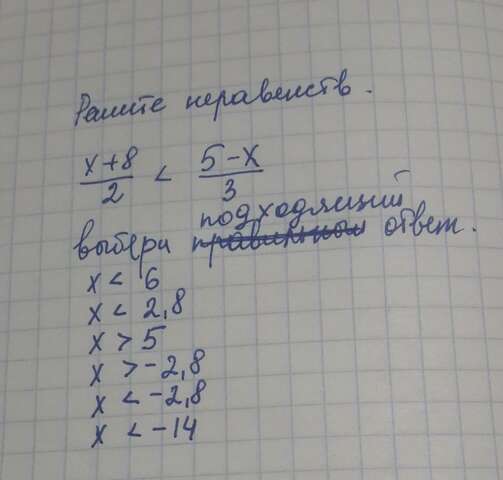 Решите неравенств.
x+8/2 < 5-x/3
подходящий
выбери правильный ответ.
x < 6
x < 2,8
x > 5
x > -2,8
x < -2,8
x < -14